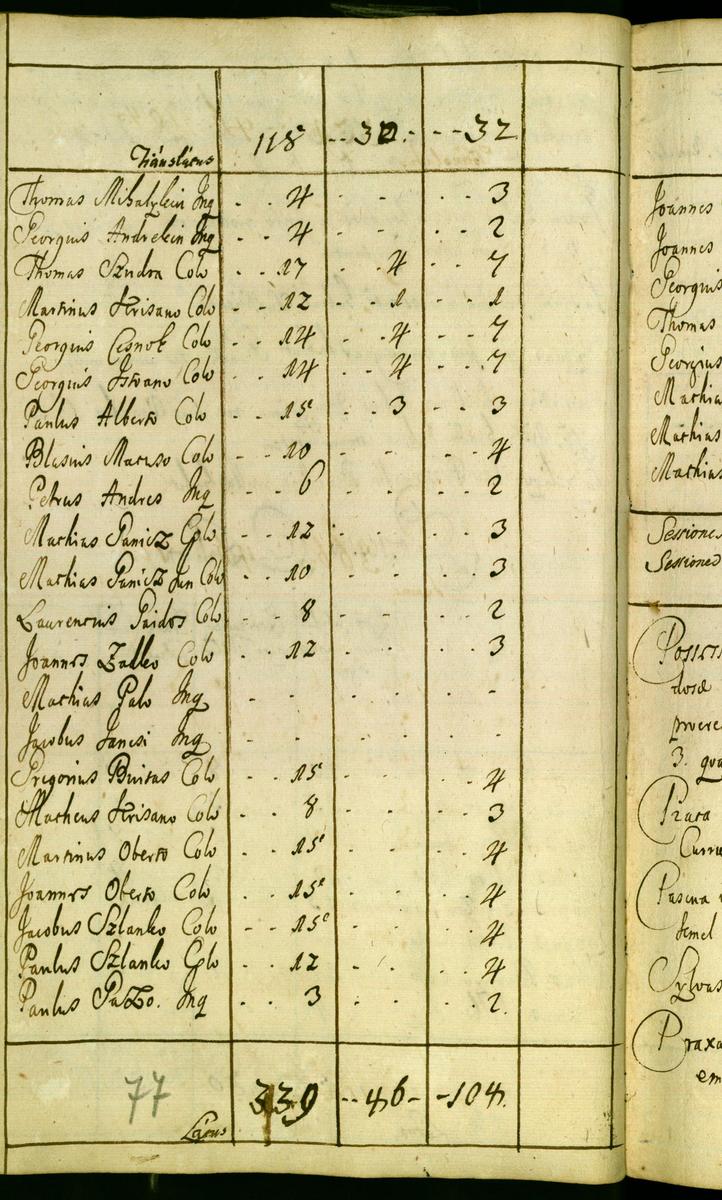 Translatus 118 - - 30 - - - - 32
Thomas Mihalykin Inq - - 4 - - - - 3
Georgius Andrekin Inq - - 4 - - - - 2
Thomas Szudra Colo - - 17 - 4 - - 7
Martinus Krisano Colo - - 12 - 1 - - 1
Georgius Cesnok Colo - - 14 - 4 - - 7
Georgius Istvano Colo - - 14 - 4 - - 7
Paulus Alberto Colo - - 15 - - 3 - - 3
Blasius Matuso Colo - - 10 - - - - 4
Petrus Andres Inq - - 6 - - - - 2
Mathias Panicz Colo - - 12 - - - - 3
Mathias Panicz Jun Colo - - 10 - - - - 3
Laurencius Paidos Colo - - 8 - - - - 2
Joannes Zalko Colo - - 12 - - - - 3
Mathias Palo Inq - - - - - - - -
Jacobus Jancsi Inq - - - - - - - -
Gregorius Buitas Colo - - 15 - - - - 4
Matheus Krisano Colo - - 8 - - - - 3
Martinus Oberto Colo - - 15 - - - - 4
Joannes Oberto Colo - - 15 - - - - 4
Jacobus Szlanko Colo - - 15 - - - - 4
Paulus Szlanko Colo - - 12 - - - - 4
Paulus Pazzo. Inq - - 3 - - - - 2.
77 Latus 339 - - 46 - - 104.
Joannes
Joannes
Georgius
Thomas
Georgius
Mathia
Mathias
Mathias
Sessiones
Sessiones
Possess
dosæ
procre
3. qua
Prata
Curru
Pascua
semel
Sylvas
Praxa
em